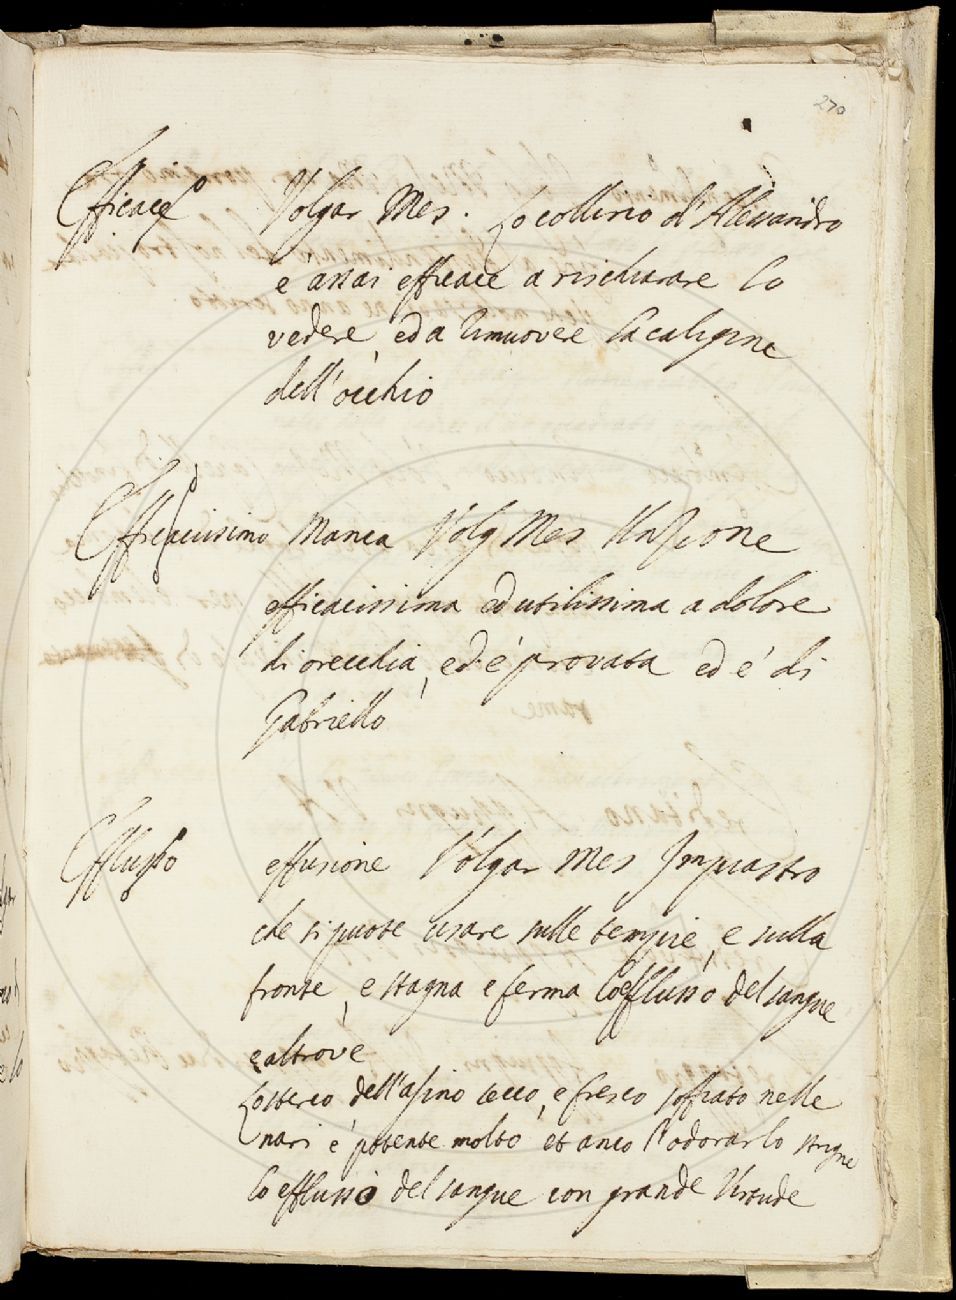 270
Efficace Volgar Mes. Lo collirio d'Alessandro
e assai efficace a rischiarare lo
vedere, ed a rimuovere la caligine
dell'occhio
Efficacissimo Manca Volg Mes
efficacissima ed utilissima a dolore
di orecchia, ed é provata ed é di
Gabriello
Efflusso effusione Volgar Mes Impiastro
che si puote usare sulle tempie, e sulla
fronte, e stagna e ferma lo efflusso del sangue
e altrove
Lo sterco dell'asino secco, e fresco soffiato nelle
nari é potente molto et anco l'odorarlo strigne
lo efflusso del sangue con grande Virtude